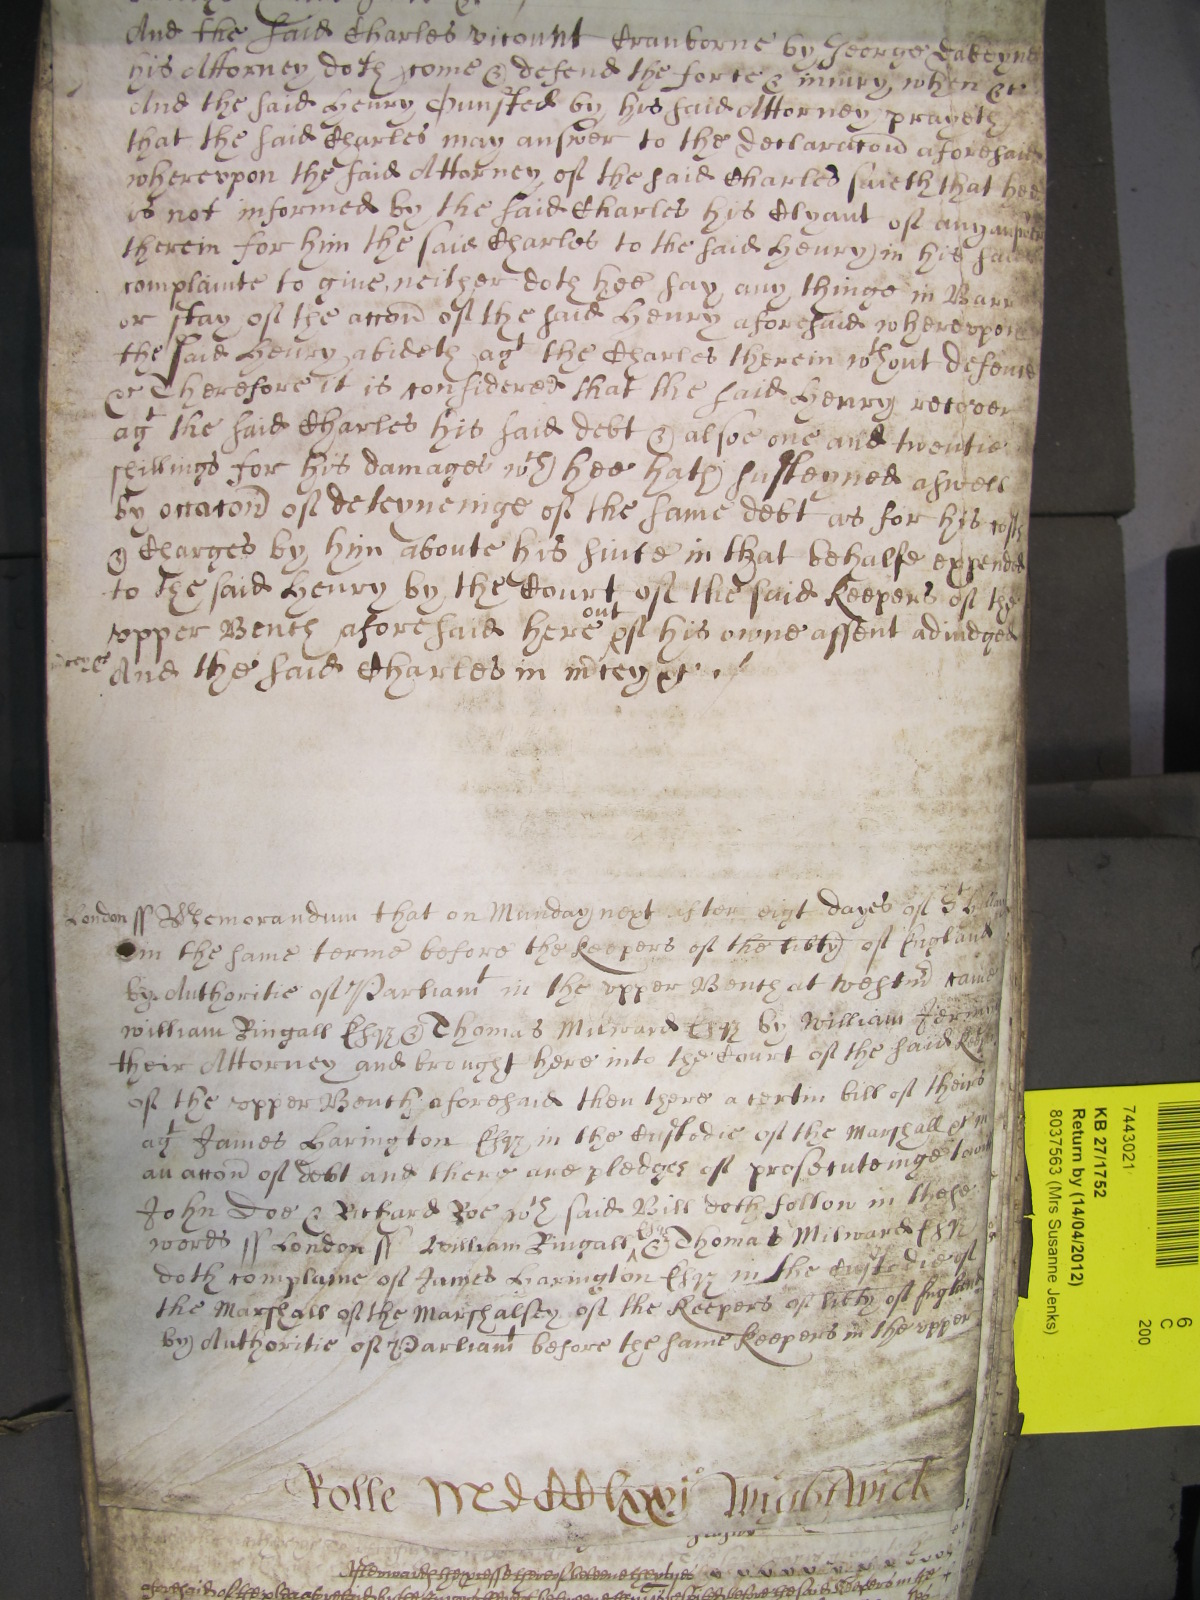 And the said Charles vicount Cranborne by George
his Attorney doth come & defend the force & iniury when &c
And the said Henry Punsted by his said Attorney prayeth
that the said Charles may answer to the declaracon aforesaid
wherevpon the said Attorney of the said Charles saieth that hee
is not informed by the said Charles his Clyant of any answere
therein for him the said Charles to the said Henry in his said
complainte to give, neither doth hee say any thinge in Barr
or stay of the accon of the said Henry aforesaid wherevpon
the said Henry abideth agt the Charles therein wthout defence
&c Therefore it is considered that the said Henry recover
agt the said Charles his said debt & alsoe one and twentie
shillings for his damages wch hee hath susteyned aswell
by occacon of deteyneinge of the same debt as for his costs
& Charges by him aboute his suite in that behalfe expended
to the said Henry by the Court of the said Keepers of the
vpper Bench aforesaid here out of his owne assent adiudged
And the said Charles in mcey &c
London ss Memorandum that on Munday next after eigt dayes of St Hillary
in the same terme before the Keepers of the libty of England
by Authoritie of Parliamt in the vpper Bench at Westmr came
William Ringall Esqr & Thomas Milward Esqr by William
their Attorney and brought here into the Court of the said Keeps
of the vpper Bench aforesaid then there a certin bill of theirs
agt James Harington Esqr in the Custodie of the Marshall &c in
an accon of debt and there are pledges of prosecuteinge to witt
John Doe & Richard Roe wch said Bill doth follow in these
words ss London ss William Ringall Esqr & Thomas Milward Esqr
doth complaine of James Harington Esqr in the Custodie of
the Marshall of the Marshalsey of the Keepers of libty of England
by Authoritie of Parliamt before the same Keepers in the vpper
Rolle Wightwick
7443021
KB 27/1752
Return by (14/04/2012)
8037563 (Mrs Susanne Jenks)
6
C
200